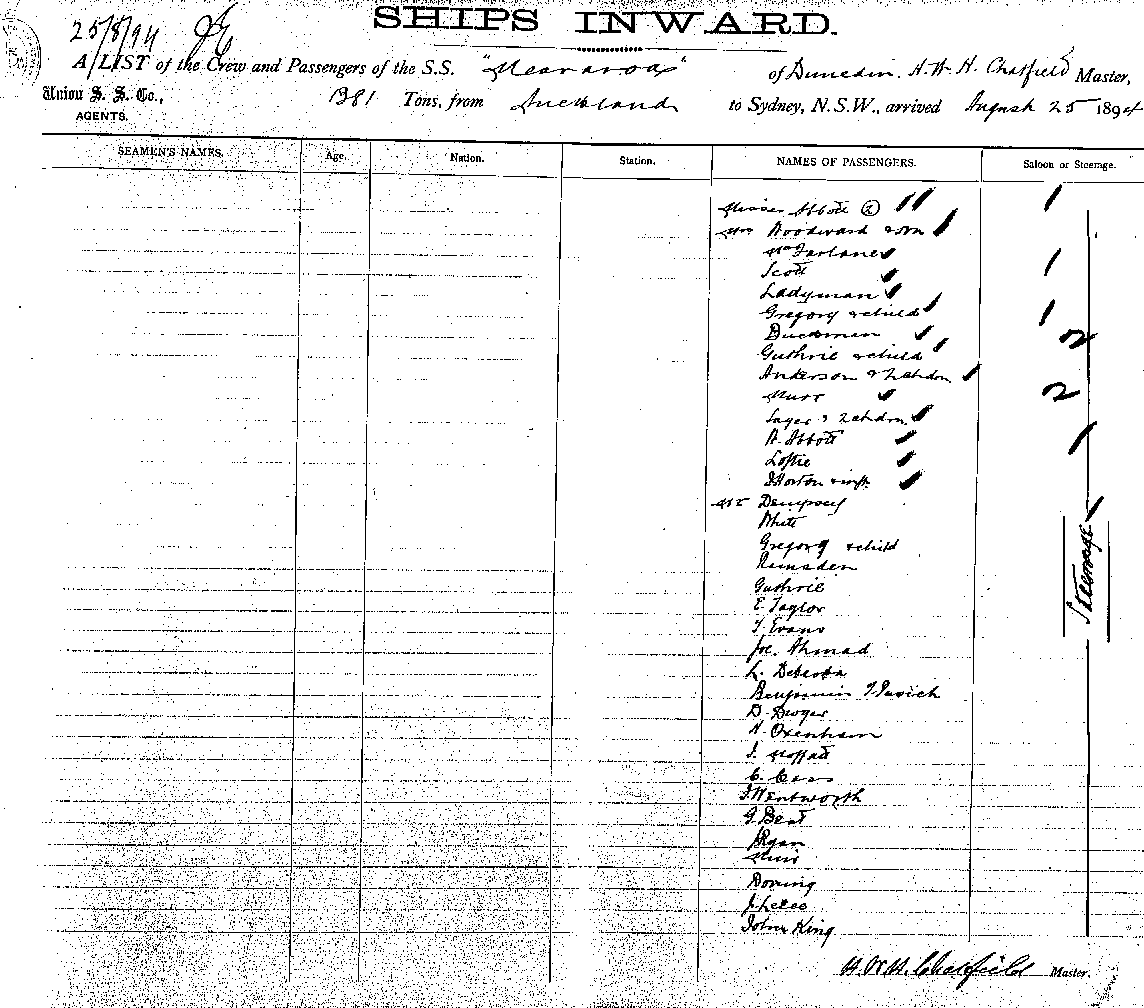 SHIPS INWARD.
25/8/94
A LIST of the Crew and Passengers of the S.S. of Dunedin, H. W. H. Chatfield Master,
Union S. S. Co., 1381 Tons, from Auckland to Sydney, N.S.W., arrived August 25 1894
AGENTS.
SEAMEN'S NAMES. Age. Nation. Station. NAMES OF PASSENGERS. Saloon or Steerage.
Misses Abbott (2)
Mrs Woodward & son
McFarlane
Scott
Ladyman
Gregory & child
Guthrie & child
Anderson & 2 chdn
Muir
& 2 chdn
A. Abbott
Loftie
Horton & inft
Mr Dempsey
White
Gregory & child
Ramsden
Guthrie
E. Taylor
T. Evans
Joe. Ahmad
Benjamin
D. Dwyer
Oxenham
J. Moffatt
C. Cass
J Wentworth
G. Bent
Ryan
Muir
Doring
John King
Steerage
H. W. H. Chatfield Master.